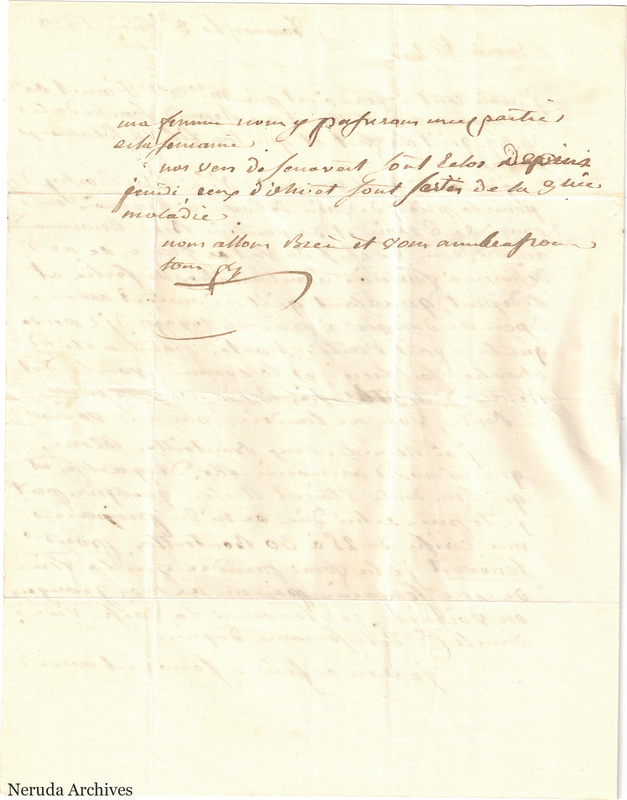 ma femme nous y passerons une partie
de la semaine
nos vers de senovert sont Eclos depuis
jeudi ceux d'ehivet sont sortis de la 3
maladie.
nous allons Bien et vous ambrassons
tous
Neruda Archives